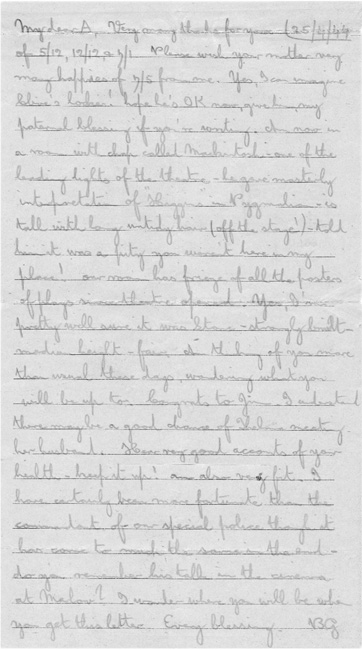 My dear A, Very many thanks for yours (25/4/44
of 5/12, 12/12, & 7/1. Please wish your mother very
many happies of 7/5 from me. Yes, I can imagine
looks! hope he's OK now, give him my
paternal blessing if you're writing. Am now in
a room with chap called Mackintosh - one of the
leading lights of the theatre - he gave masterly
interpretation of 'Higgins' in Pygmalion - is
tall with long untidy hair (off the stage!) - told
him it was a pity you weren't here in my
place! our room has frieze of all the posters
of plays since theatre opened. Yes, I'm
pretty well sure it was - strongly built -
medium height - fair. of you more
than usual these days, wondering what you
will be up to. Congrats to Jim.
there may be a good chance of meeting
her husband. Have very good accounts of your
health - keep it up! am also very fit. I
have certainly been more fortunate than the
commandant of our special police tho' fact
has come to much the same in the end -
do you remember his talk in the cinema
at ? I wonder where you will be when
you get this letter. Every blessing.